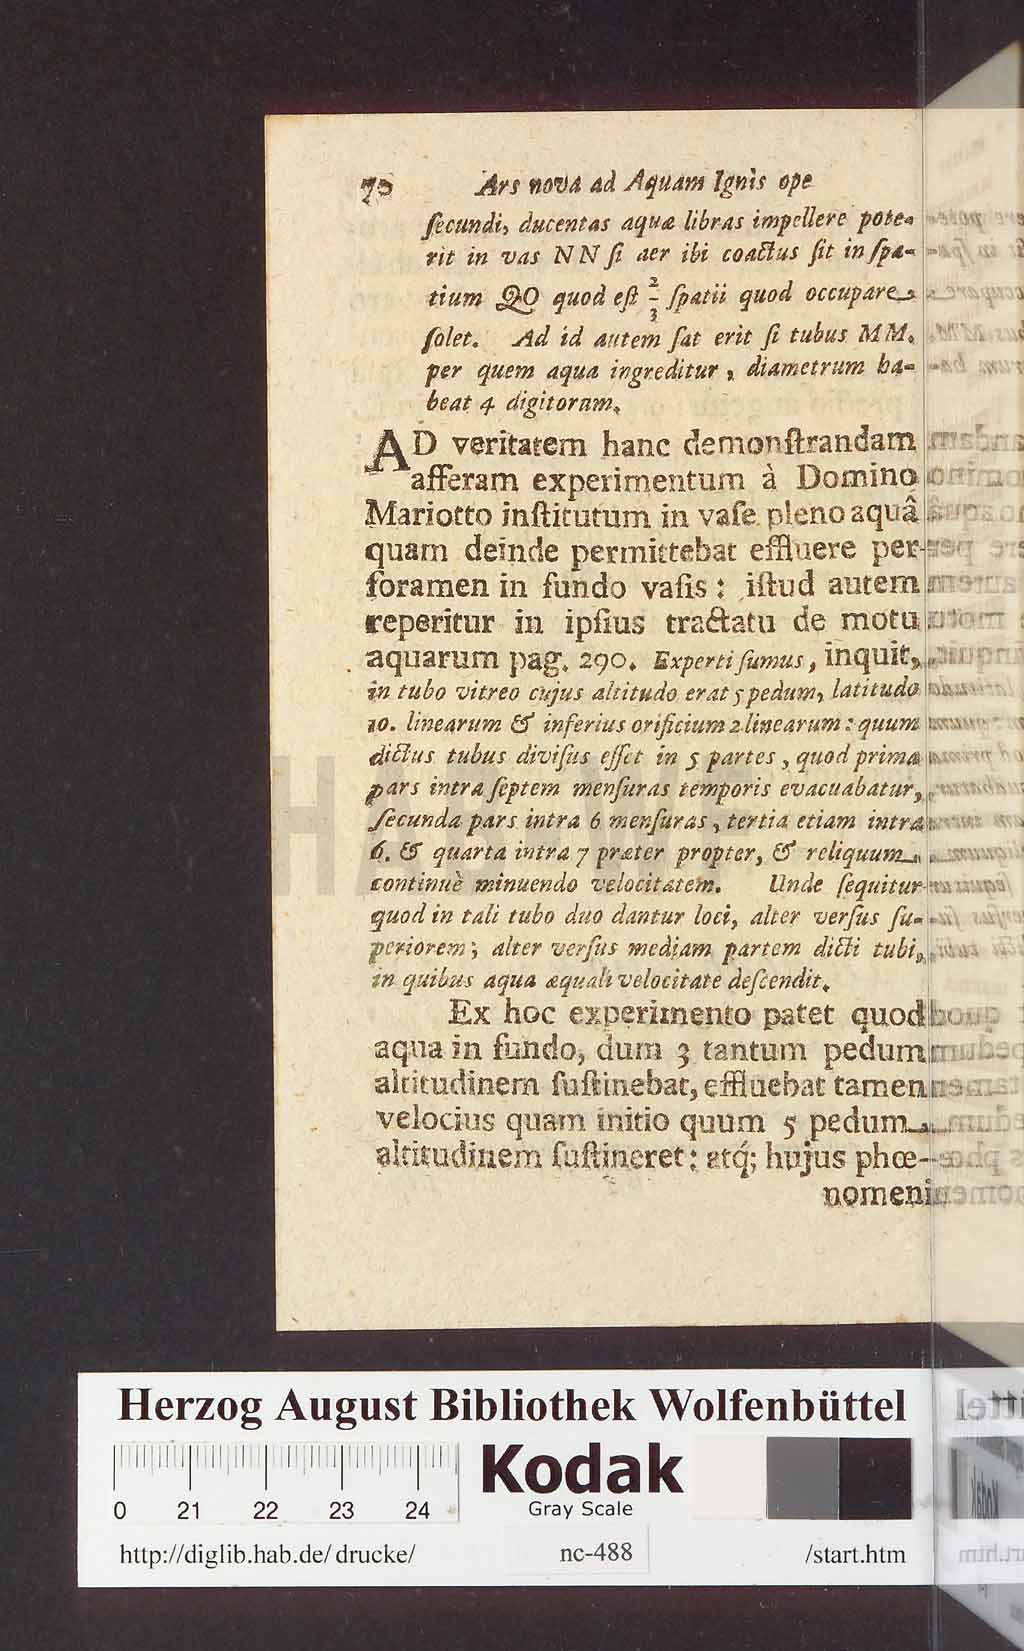 70 Ars nova ad Aquam Ignis ope
ſecundi, ducentas aquæ libras impellere pote-
rit in vas NN ſi aer ibi coactus ſit in ſpa-
tium QO quod eſt 2/3 ſpatii quod occupare
ſolet. Ad id autem ſat erit ſi tubus MM.
per quem aqua ingreditur, diametrum ha-
beat 4 digitorum.
AD veritatem hanc demonſtrandam
afferam experimentum à Domino
Mariotto inſtitutum in vaſe pleno aquâ
quam deinde permittebat effluere per
foramen in fundo vaſis: iſtud autem
reperitur in ipſius tractatu de motu
aquarum pag. 290. Experti ſumus, inquit,
in tubo vitreo cujus altitudo erat 5 pedum, latitudo
10. linearum & inferius orificium 2 linearum: quum
dictus tubus diviſus eſſet in 5 partes, quod prima
pars intra ſeptem menſuras temporis evacuabatur,
ſecunda pars intra 6 menſuras, tertia etiam intra
6. & quarta intra 7 præter propter, & reliquum
continuè minuendo velocitatem. Unde ſequitur
quod in tali tubo duo dantur loci, alter verſus ſu-
periorem; alter verſus mediam partem dicti tubi,
in quibus aqua æquali velocitate deſcendit.
Ex hoc experimento patet quod
aqua in fundo, dum 3 tantum pedum
altitudinem ſuſtinebat, effluebat tamen
velocius quam initio quum 5 pedum
altitudinem ſuſtineret: atq́; hujus phœ-
nomeni
Herzog August Bibliothek Wolfenbüttel
Kodak
Gray Scale
0 21 22 23 24
http://diglib.hab.de/drucke/ nc-488 /start.htm